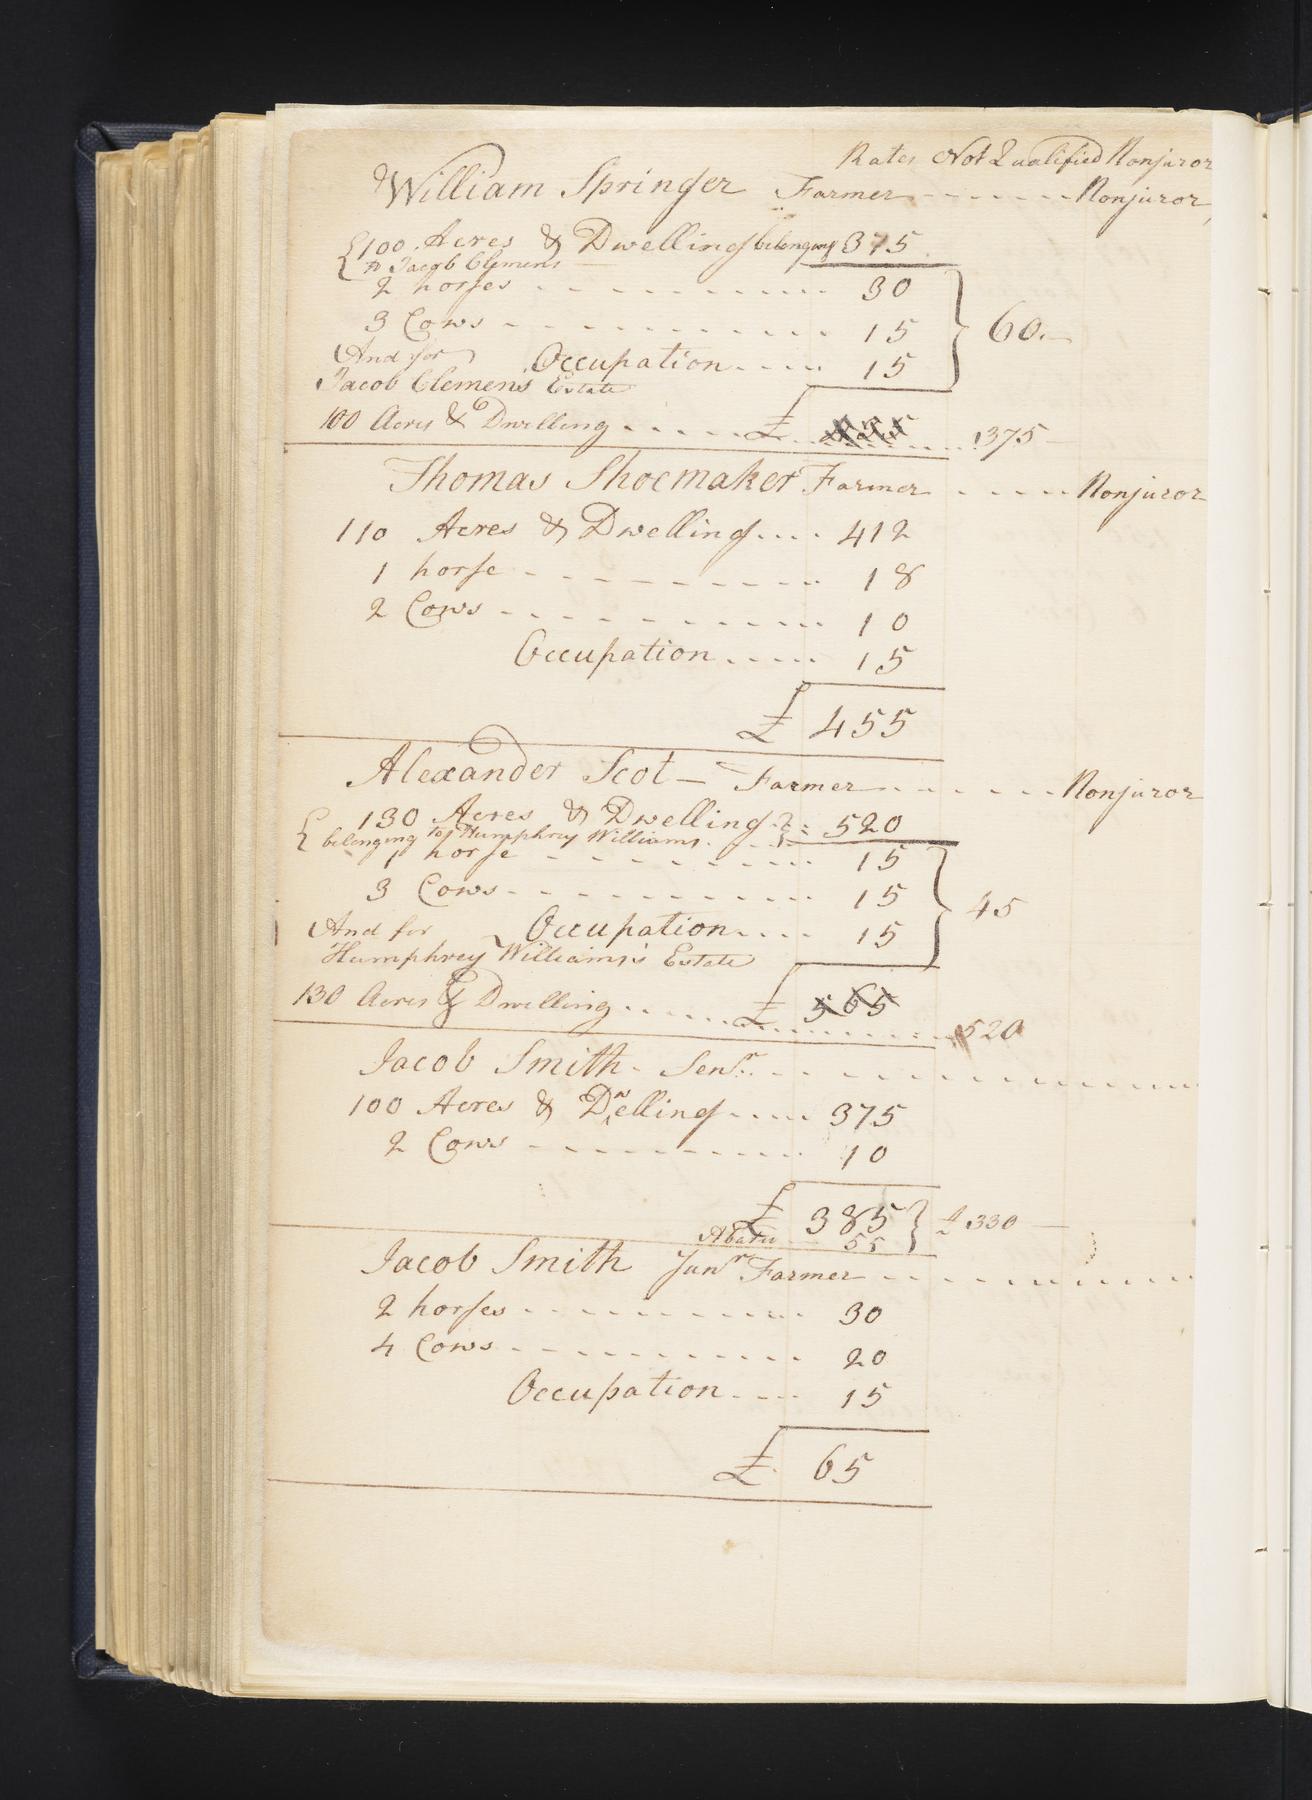 Rates Not Qualified Nonjuror
William Springer Farmer - - - - - - Nonjuror
{100 Acres & Dwelling belonging 375
to Jacob Clemens
2 horses - - - - - - - - - - - 30
3 Cows - - - - - - - - - - - 15 } 60
And for Occupation - - - - 15
Jacob Clemens' Estate
100 Acres & Dwelling . . . . . £ . . . . . . 375
Thomas Shoemaker Farmer - - - - - Nonjuror
110 Acres & Dwelling .... 412
1 horse - - - - - - - - - - 18
2 Cows - - - - - - - - - - - 10
Occupation ..... 15
£ 455
Alexander Scot - Farmer - - - - - - - Nonjuror
{ 130 Acres & Dwelling } 520
belonging to Humphrey Williams.
1 horse - - - - - - - - - 15
3 Cows - - - - - - - - - - 15 } 45
And for Occupation .... 15
Humphrey Williams's Estate
130 Acres & Dwelling . . . . . £ 565 . . . . 520
Jacob Smith - Senr. - - - - - - - - - - -
100 Acres & Dwelling .... 375
2 Cows - - - - - - - - - - 10
£ 385 } £ 330
Abate 55
Jacob Smith Junr Farmer - - - - - - - - -
2 horses - - - - - - - - - - - 30
4 Cows - - - - - - - - - - - 20
Occupation - - - - 15
£ 65